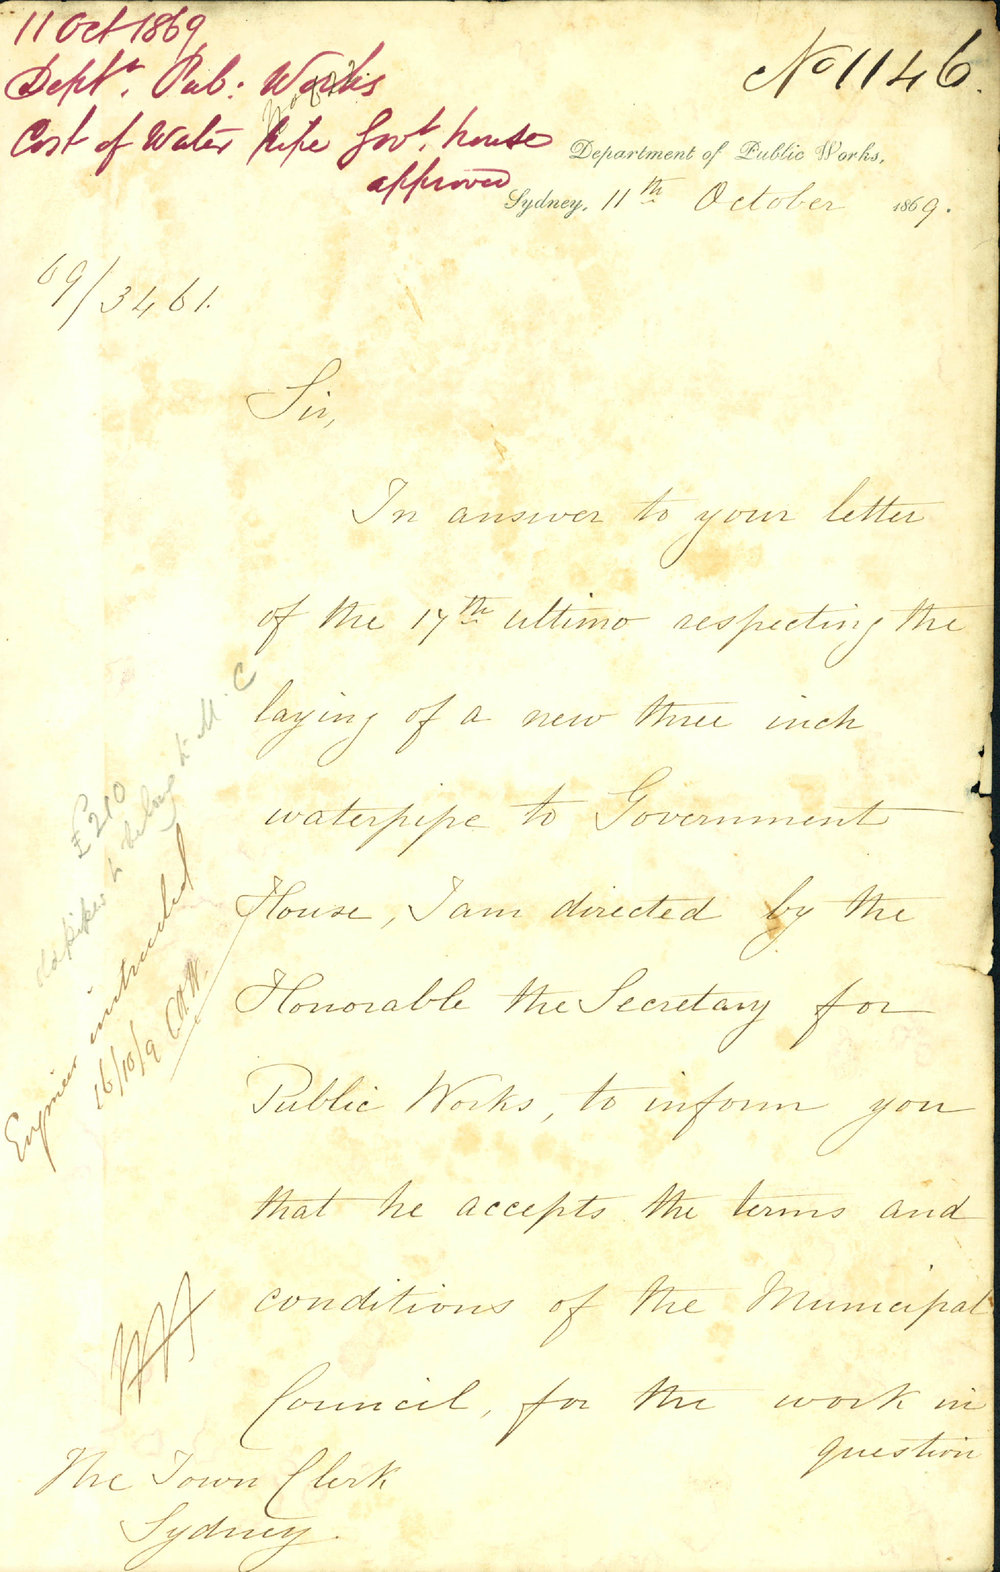 11 Oct 1869
Deptt. Pub: Works
Cost of Water Pipe Govt. house
approved
No 1146.
Department of Public Works,
Sydney, 11th October 1869.
69/3461.
Sir,
In answer to your letter
of the 17th ultimo respecting the
laying of a new three inch
waterpipe to Government
House, I am directed by the
Honorable the Secretary for
Public Works, to inform you
that he accepts the terms and
conditions of the Municipal
Council, for the work in
question
£210
to belong to M. C
Engineer instructed
16/10/9
The Town Clerk
Sydney.